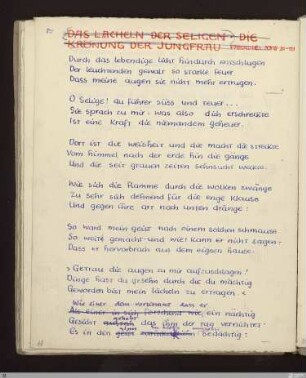 DAS LÄCHELN DER SELIGEN · DIE
KRÖNUNG DER JUNGFRAU
Durch das lebendige licht hindurch verschlugen
Der leuchtenden gewalt so starke feuer
Dass meine augen sie nicht mehr ertrugen.
O Selige! du führer süss und teuer ...
Sie sprach zu mir: was also dich erschreckte
Ist eine kraft die niemandem geheuer.
Dort ist die weisheit und die macht die streckte
Vom himmel nach der erde hin die gänge
Und die seit grauen zeiten sehnsucht weckte.
Wie sich die flamme durch die wolken zwänge
Zu sehr sich dehnend für die enge klause
Und gegen ihre art nach unten dränge:
So ward mein geist nach einem solchen schmause
So weit gemacht und wie? kann er nicht sagen
Dass er hervorbrach aus dem eignen hause.
› Getrau die augen zu mir aufzuschlagen!
Dinge hast du gesehn durch die du mächtig
Geworden bist mein lächeln zu ertragen ‹
Wie einer dem
Als einer in sich
Gesicht
Es in den geist bedächtig: